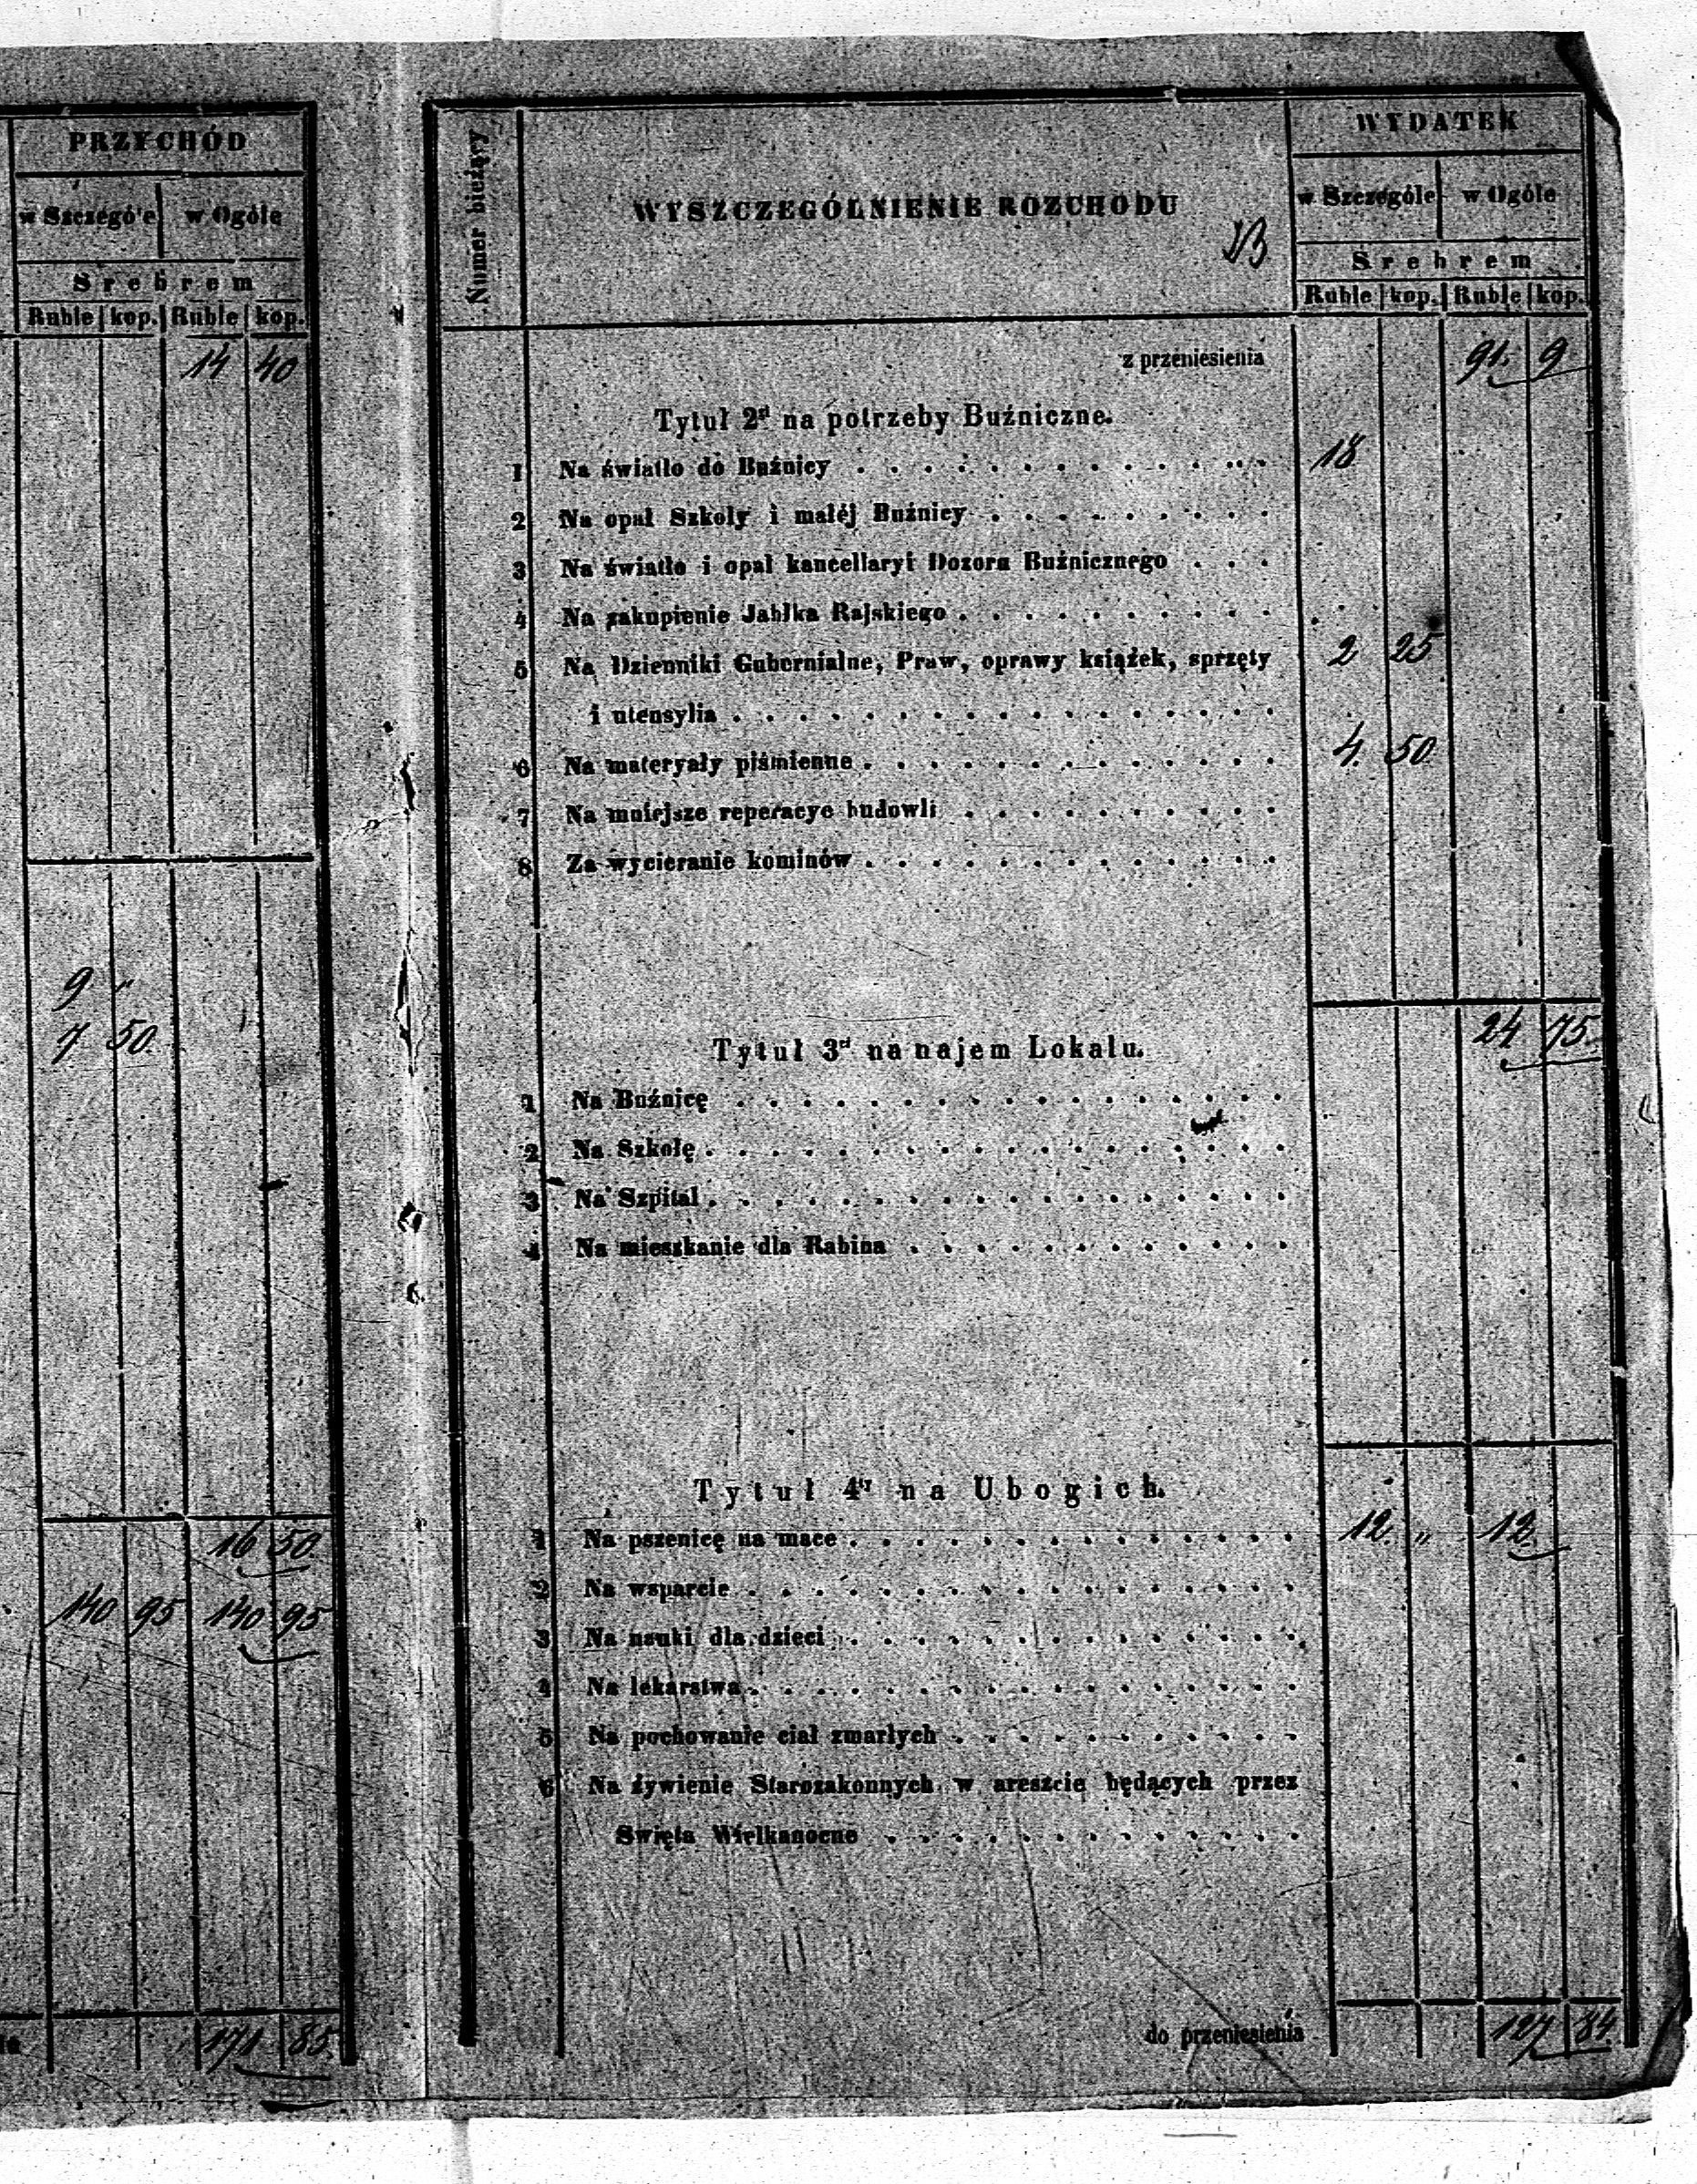 PRZYCHÓD
w Szczególe w Ogóle
Srebrem
Ruble kop. Ruble kop.
14 40
9 „
7 50.
16 50.
140 95 140 95
171 85.
Numer bieżący
WYSZCZEGÓLNIENIE ROZCHODU
WYDATEK
w Szczególe w Ogóle
Srebrem
Ruble kop. Ruble kop.
z przeniesienia 91. 9
Tytuł 2gi na potrzeby Buźniczne.
1 Na światło do Buźnicy . . . . . . . . . . . . . 18
2 Na opał Szkoły i małéj Buźnicy . . . . . . . . .
3 Na światło i opał kancellaryi Dozoru Buźnicznego . . .
4 Na zakupienie Jabłka Rajskiego . . . . . . . . . .
5 Na Dzienniki Gubernialne, Praw, oprawy książek, sprzęty 2 25
i utensylia . . . . . . . . . . . . . . . . .
6 Na materyały piśmienne . . . . . . . . . . . . . 4. 50
7 Na mniejsze reperacye budowli . . . . . . . . . .
8 Za wycieranie kominów . . . . . . . . . . . . .
24 75.
Tytuł 3ci na najem Lokalu.
1 Na Buźnicę . . . . . . . . . . . . . . . . .
2 Na Szkołę . . . . . . . . . . . . . . . . . .
3 Na Szpital . . . . . . . . . . . . . . . . . .
4 Na mieszkanie dla Rabina . . . . . . . . . . . .
Tytuł 4ty na Ubogich.
1 Na pszenicę na mace . . . . . . . . . . . . . . 12. „ 12.
2 Na wsparcie . . . . . . . . . . . . . . . . .
3 Na nauki dla dzieci . . . . . . . . . . . . . .
4 Na lekarstwa . . . . . . . . . . . . . . . . .
5 Na pochowanie ciał zmarłych . . . . . . . . . . .
6 Na żywienie Starozakonnych w areszcie będących przez
Święta Wielkanocne . . . . . . . . . . . . .
do przeniesienia 127 84.